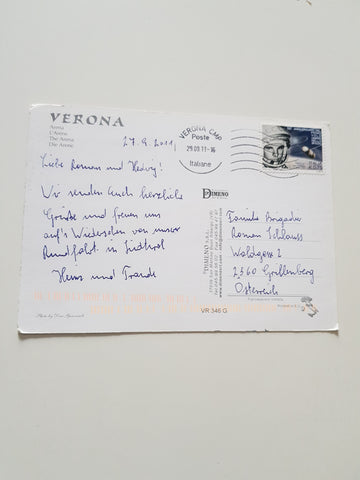 VERONA
Arena
L'Arena
The Arena
Die Arena
27.9.2011
Liebe Roman und Hedwig!
Wir senden Euch herzliche
Grüße und freuen uns
auf's Wiedersehen von unser
Rundfahrt in Südtirol
Hans und Traude
VERONA CMP
Poste
29.09.11-16
Italiane
DIMENO
Familie Brigadier
Roman Schlauss
Waldgasse 2
Österreich
VR 346 G